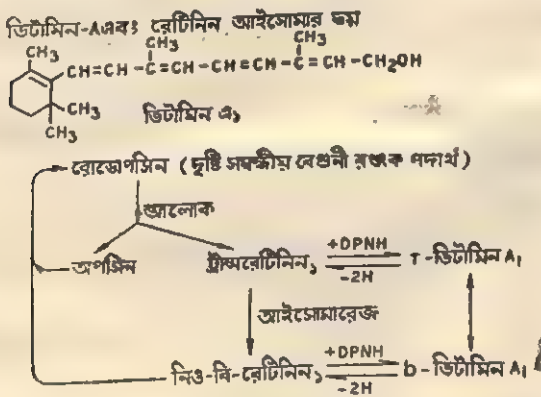 ভিটামিন-A এবং রেটিনিন আইসোমার ভয়
CH₃ CH₃ CH₃
CH=CH-C=CH-CH=CH-C=CH-CH₂OH
CH₃
CH₃
ভিটামিন এ₁
রোডোপসিন (দৃষ্টি সম্বন্ধীয় বেগুনী রঞ্জক পদার্থ)
আলোক
অপসিন ট্রান্সরেটিনিন₁ +DPNH -2H T-ভিটামিন A₁
আইসোমারেজ
নিও-বি-রেটিনিন₁ +DPNH -2H b-ভিটামিন A₁